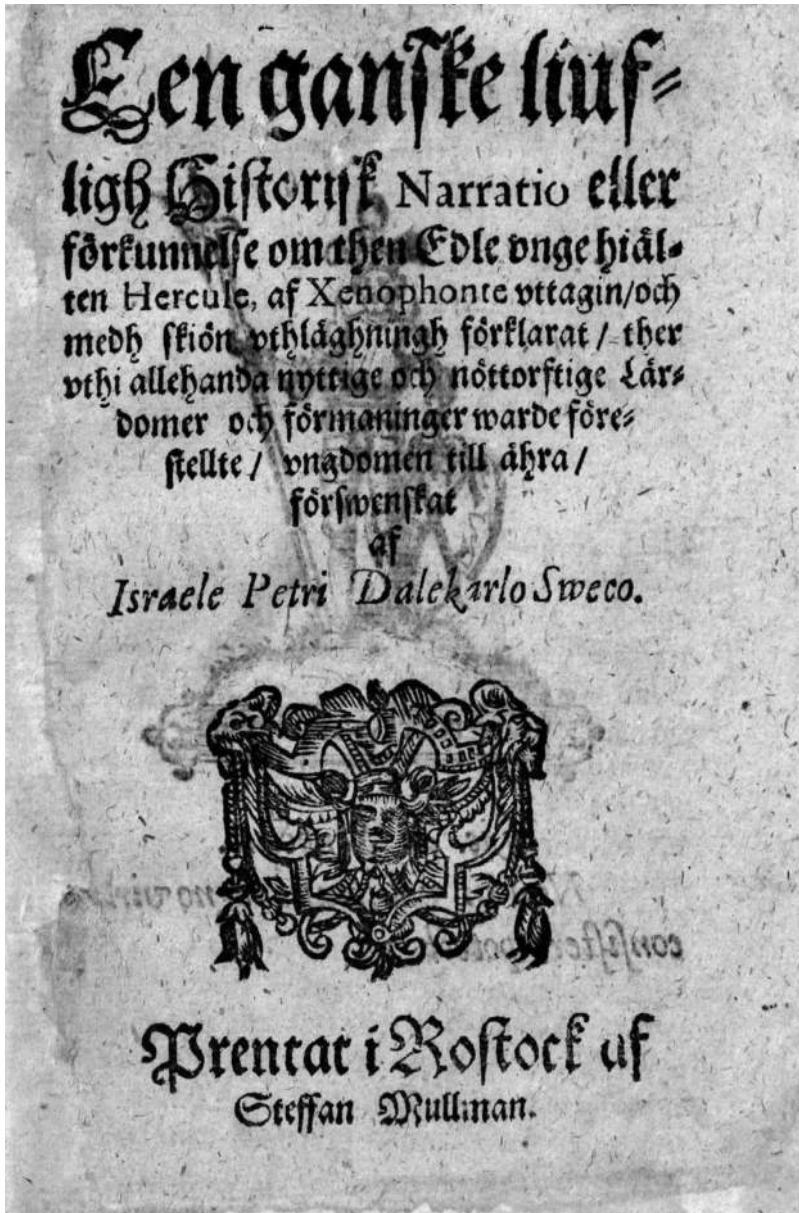 Een ganske liuf⸗
ligh Historijk Narratio eller
förkunnelse om then Edle vnge hiäl⸗
ten Hercule, af Xenophonte vttagin/och
medh skiön vthläghningh förklarat / ther
vthi allehanda nyttige och nöttorftige Lär⸗
domer och förmaninger warde före⸗
stellte / vngdomen till ähra /
förswenskat
af
Israele Petri Dalekarlo Sweco.
Prentat i Rostock af
Steffan Mullman.